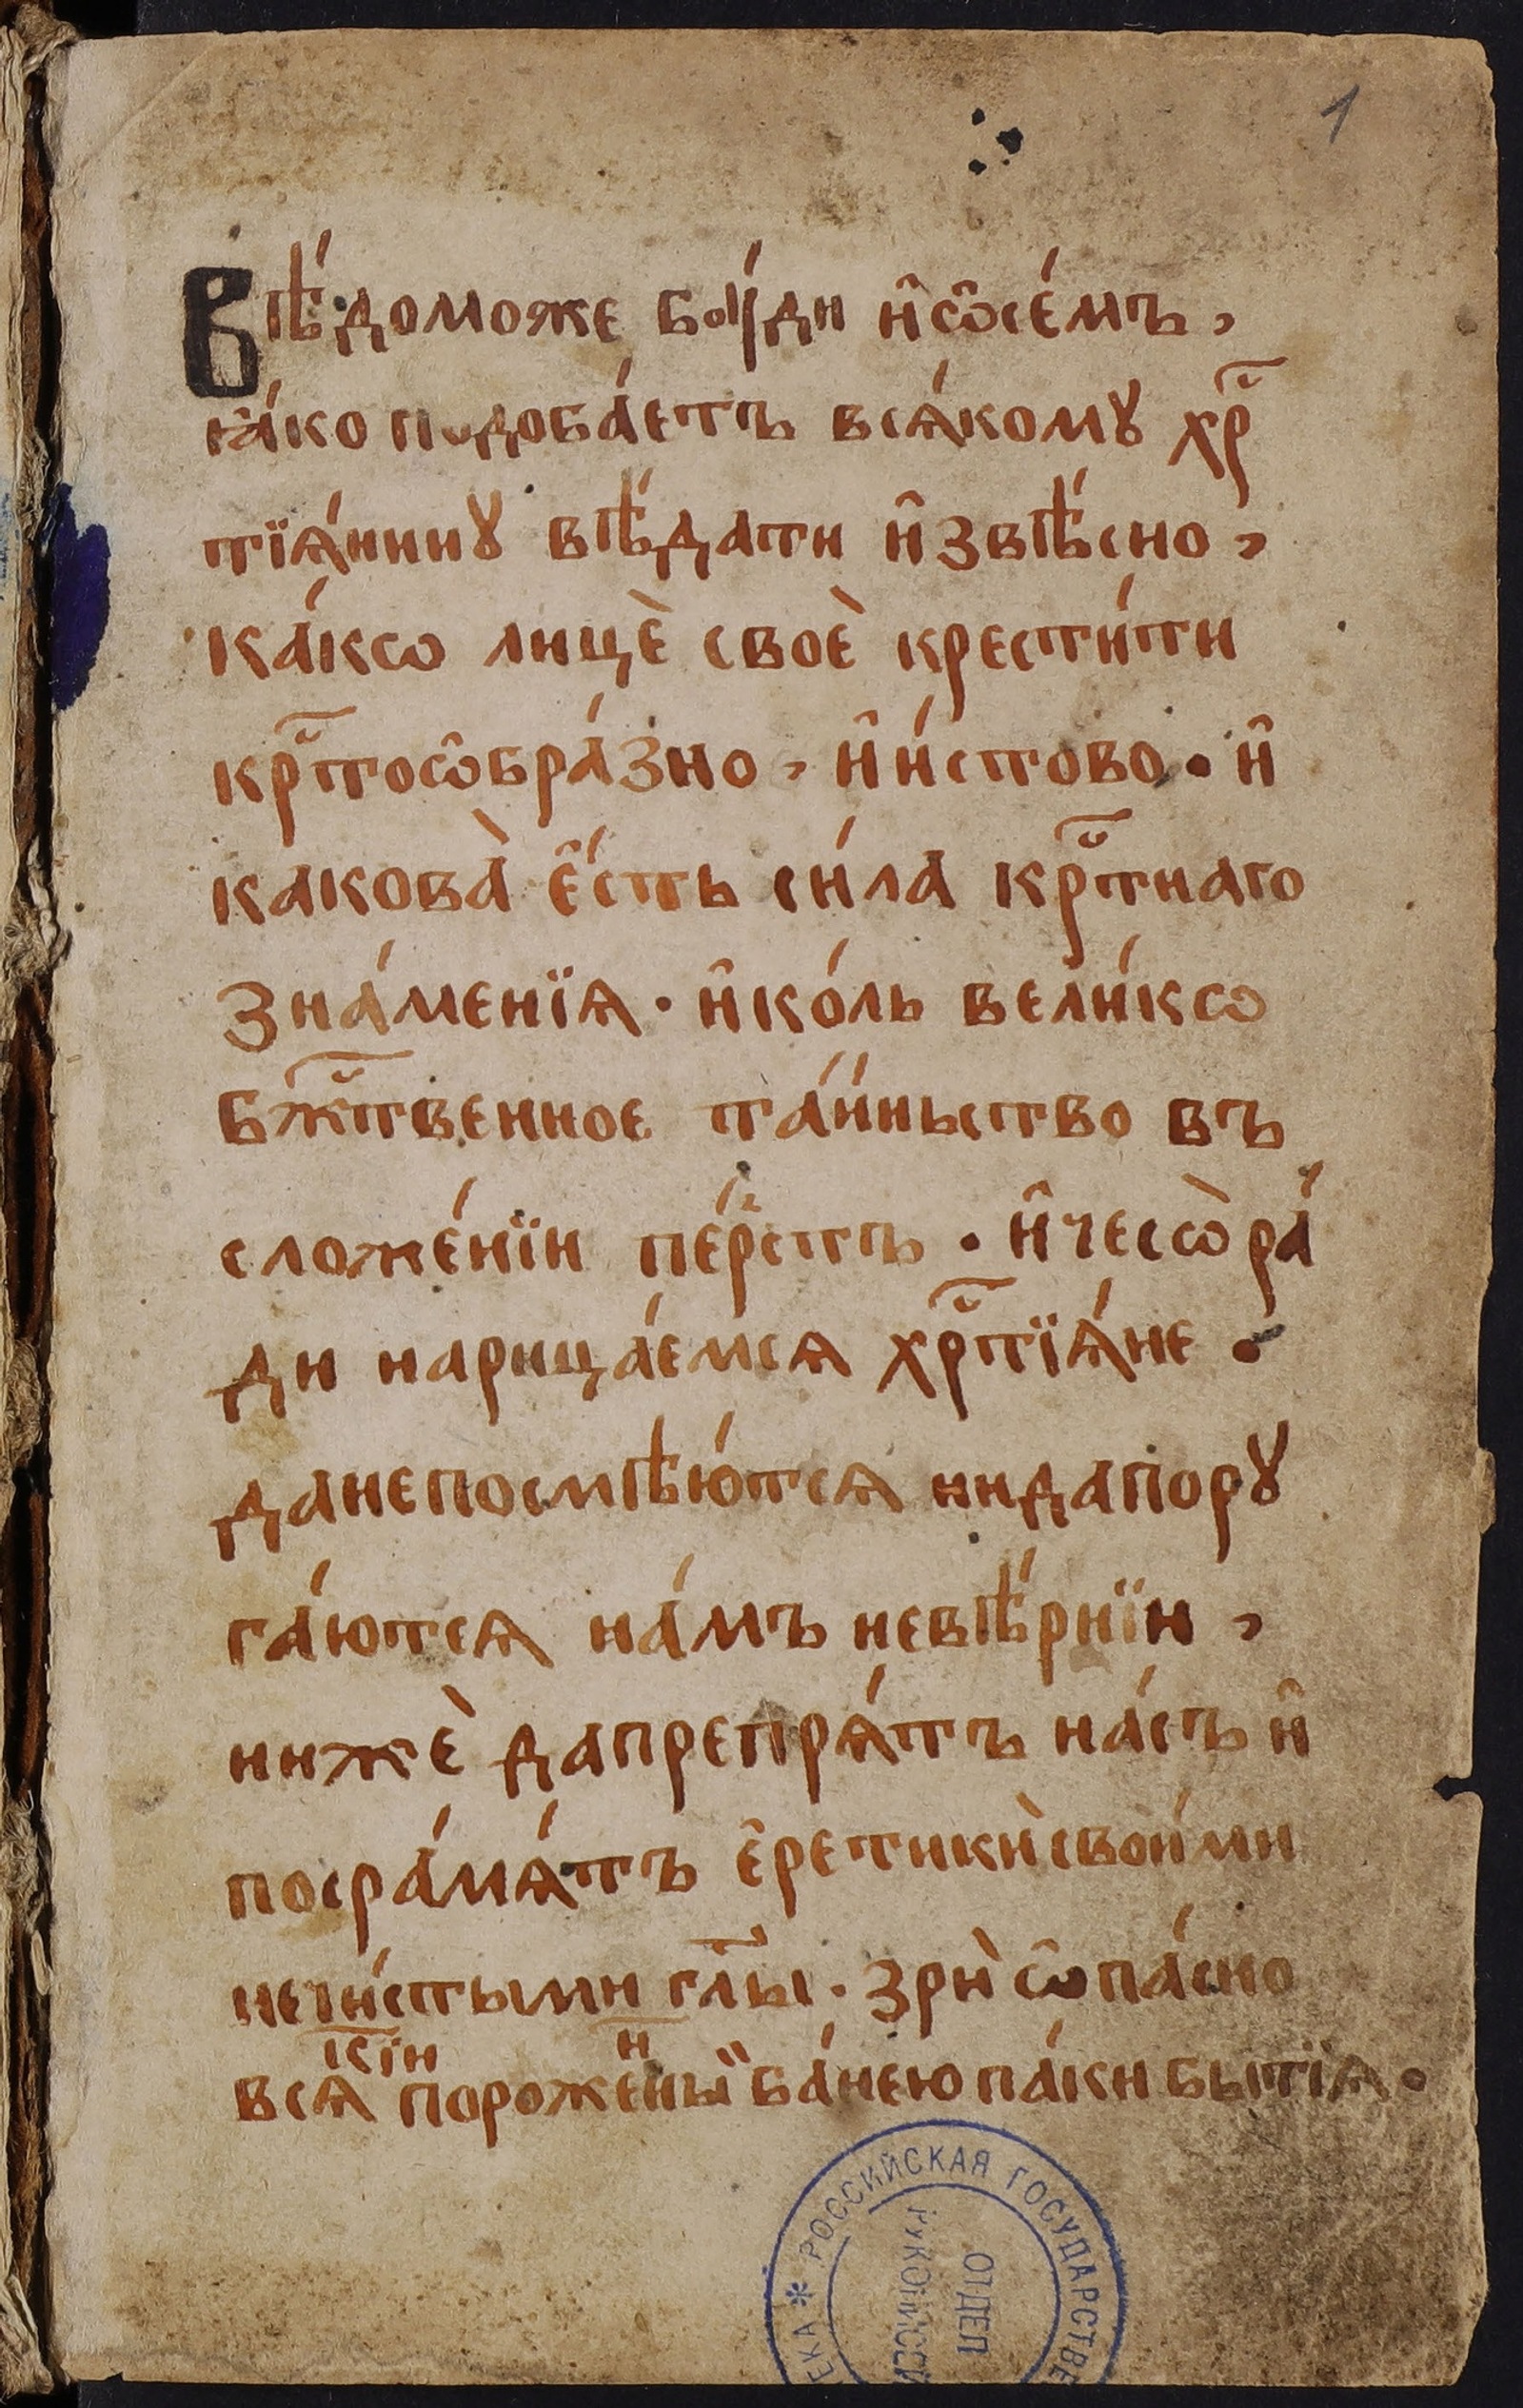 1
Вѣ́доможе бꙋ́ди и҆ѡ҆се́мъ,
ꙗ҆́ко подоба́етъ всѧ́комꙋ хрⷭ҇
тїѧ́нинꙋ вѣ́дати и҆звѣ́сно,
ка́кѡ лицѐ своѐ крести́ти
крⷭ҇тоѡ҆бра́зно, и҆и́стово. и҆
какова̀ є҆́сть си́ла крⷭ҇тнаго
зна́менїѧ. и҆ко́ль вели́кѡ
бжⷭ҇твенное та́и́ньство въ
сложе́нїи пе́рⸯстъ. и҆чесѡ̀ ра́
ди нарица́емсѧ хрⷭ҇тїѧ́не.
данепосмѣю́тсѧ нидапорꙋ
га́ютсѧ на́мъ невѣ́рнїи,
нижѐ дапрепрѧ́тъ на́съ и҆
посра́мѧ́тъ є҆ретикѝ свои́ми
нечи́стыми гл҃ы. зрѝ ѡ҆па́сно
всѧкїи пороженⷩ҇ый ба́нею па́ки бытїѧ.
РОССИЙСКАЯ ГОСУДАРСТВЕ
ЕКА *
ОТДЕЛ